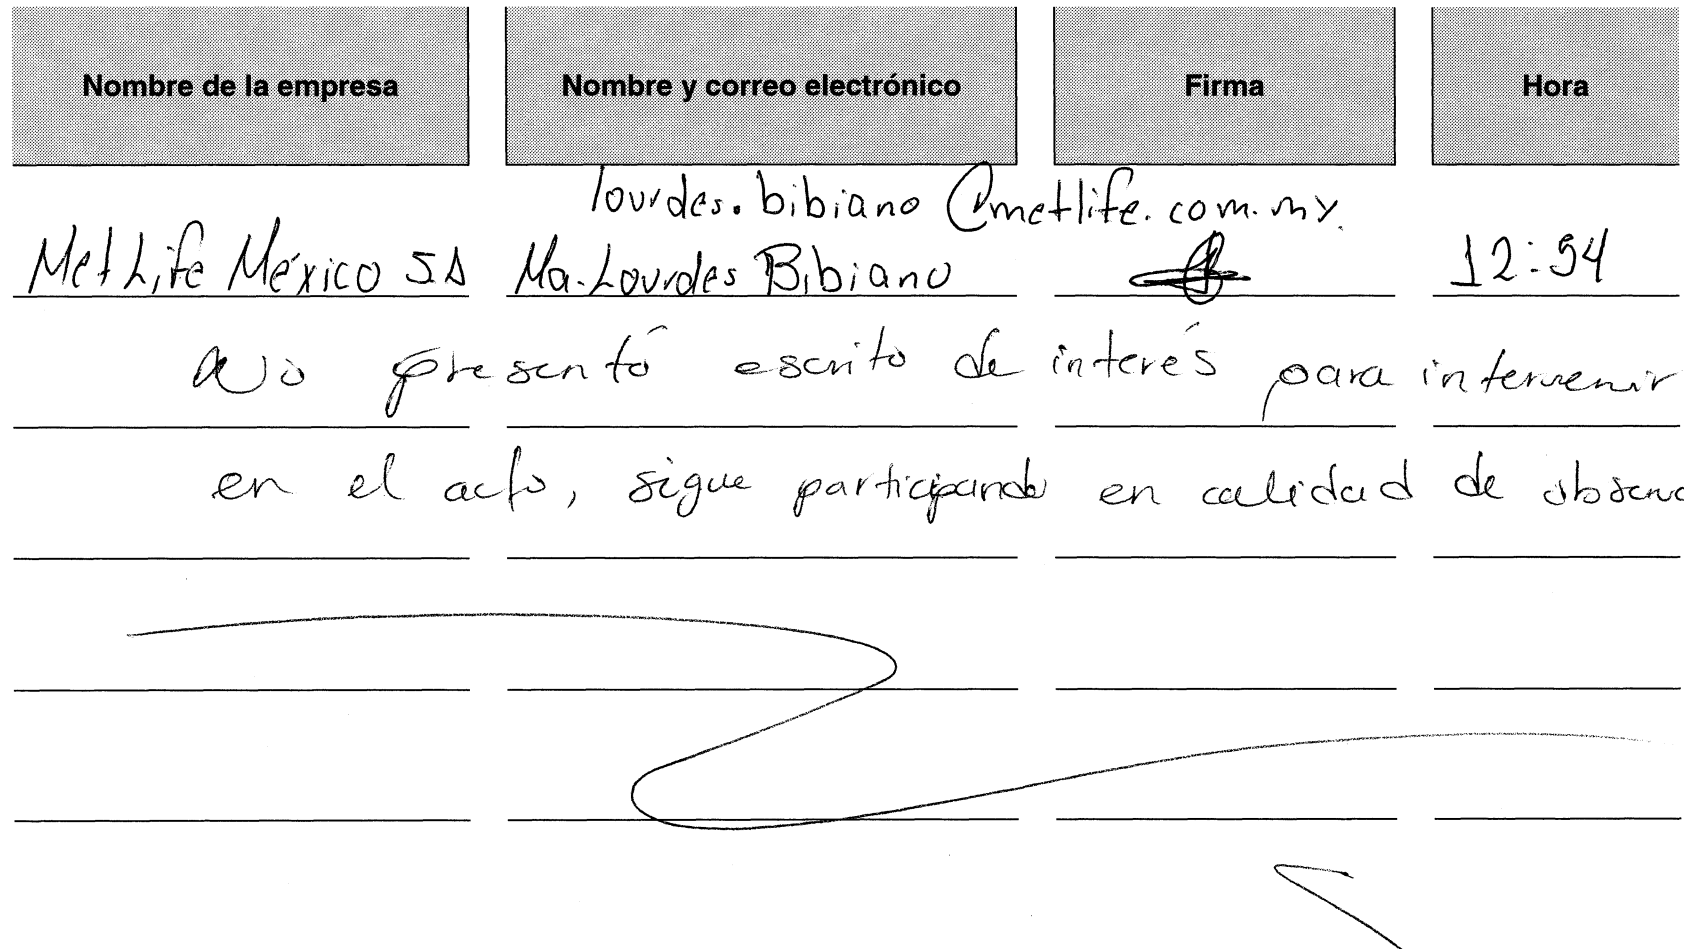 Nombre de la empresa Nombre y correo electrónico Firma Hora
lourdes.bibiano@metlife.com.mx.
MetLife México S.A Ma. Lourdes Bibiano 12:54
No presentó escrito de interés para intervenir
en el acto, sigue participando en calidad de